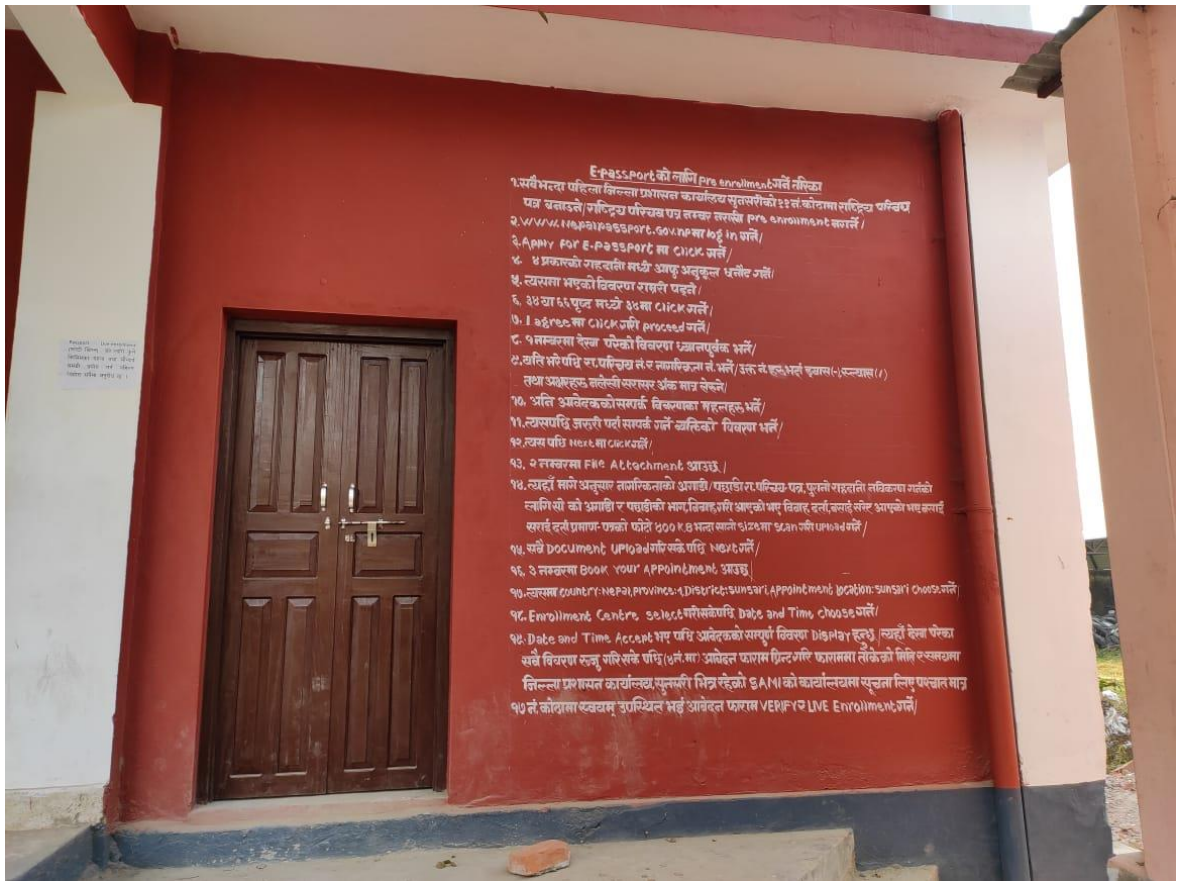 E-passport को लागि pre enrollment गर्ने तरिका
१. सबैभन्दा पहिला जिल्ला प्रशासन कार्यालय सुनसरीको ११ नं. कोठामा राष्ट्रिय परिचय
पत्र बनाउने/राष्ट्रिय परिचय पत्र नम्बर नरासी pre enrollment नगर्ने/
२. www.nepalpassport.gov.np मा log in गर्ने/
३. Apply for E-passport मा click गर्ने/
४. ४ प्रकारको राहदानी मध्ये आफु अनुकूल छनौट गर्ने/
५. त्यसमा भएको विवरण राम्ररी पढ्ने/
६. ३४ वा ६६ पृष्ट मध्ये ३४ मा click गर्ने/
७. I agree मा click गरी proceed गर्ने/
८. १ नम्बरमा देखा परेको विवरण ध्यानपूर्वक भर्ने/
९. यति भरेपछि रा. परिचय नं. र नागरिकता नं. भर्ने/उक्त नं. हरु भर्दा ड्यास(-), स्ल्यास(/)
तथा अक्षरहरु नलेखी सरासर अंक मात्र लेख्ने/
१०. अनि आवेदकको सम्पर्क विवरणका महलहरु भर्ने/
११. त्यसपछि जरुरी पर्दा सम्पर्क गर्ने व्यक्तिको विवरण भर्ने/
१२. त्यस पछि Next मा click गर्ने/
१३. २ नम्बरमा File Attachment आउछ/
१४. त्यहाँ मागे अनुसार नागरिकताको अगाडी/पछाडी रा. परिचय पत्र, पुरानो राहदानी नविकरण गर्नको
लागि सो को अगाडी र पछाडीको भाग, विवाह गरी आएको भए विवाह दर्ता, बसाई सरेर आएको भए बसाई
सराई दर्ता प्रमाण-पत्रको फोटो ५०० KB भन्दा सानो size मा scan गरी upload गर्ने/
१५. सबै Document upload गरिसके पछि Next गर्ने/
१६. ३ नम्बरमा Book Your Appointment आउछ/
१७. त्यसमा country: Nepal, province: 1, District: sunsari, Appointment location: sunsari choose गर्ने/
१८. Enrollment Centre select गरीसकेपछि Date and Time choose गर्ने/
१९. Date and Time Accept भए पछि आवेदकको सम्पुर्ण विवरण Display हुन्छ/त्यहाँ देखा परेका
सबै विवरण रुजु गरिसके पछि (४ नं. मा) आवेदन फाराम प्रिन्ट गरि फाराममा तोकेको मिति र समयमा
जिल्ला प्रशासन कार्यालय, सुनसरी भित्र रहेको SAMI को कार्यालयमा सूचना लिए पश्चात मात्र
१७ नं. कोठामा स्वयम् उपस्थित भई आवेदन फाराम VERIFY र LIVE Enrollment गर्ने/